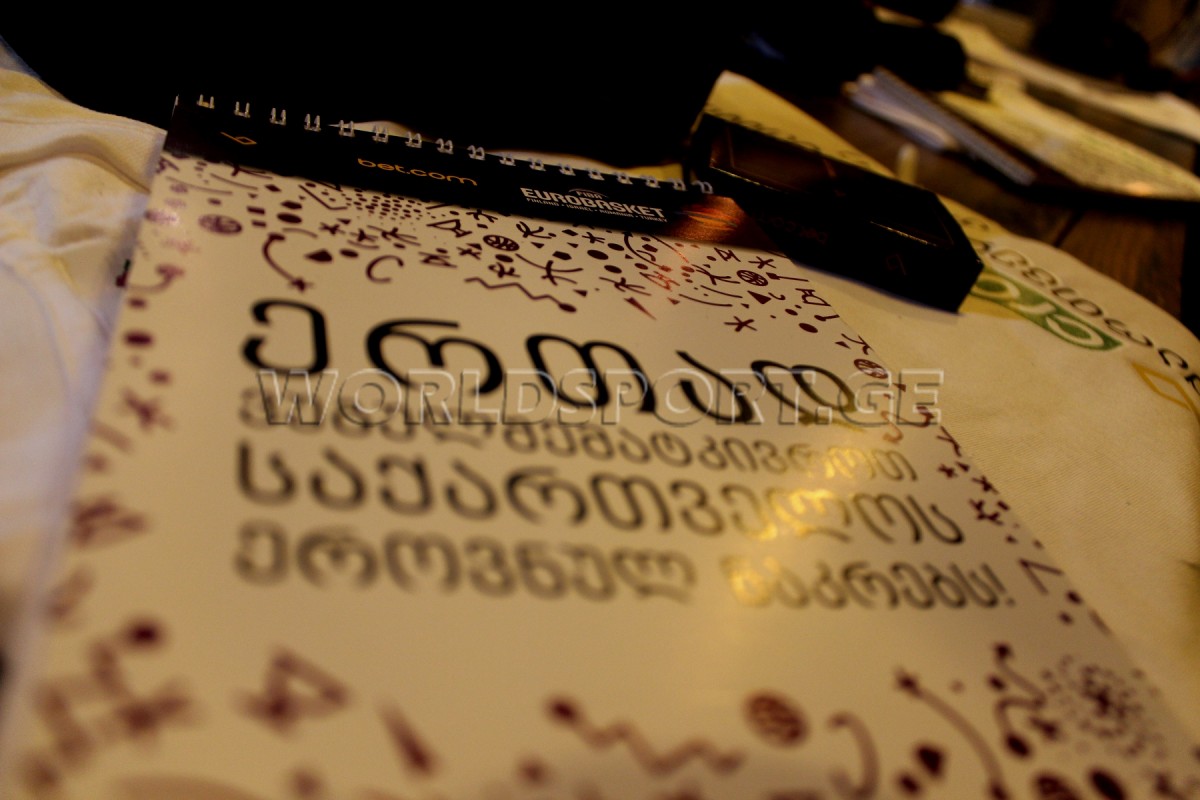 bet.com
FIBA
EUROBASKET
FINLAND • ISRAEL • ROMANIA • TURKEY
ერთად
WORLDSPORT.GE
ვგულშემატკივროთ
საქართველოს
ეროვნულ ნაკრებს!